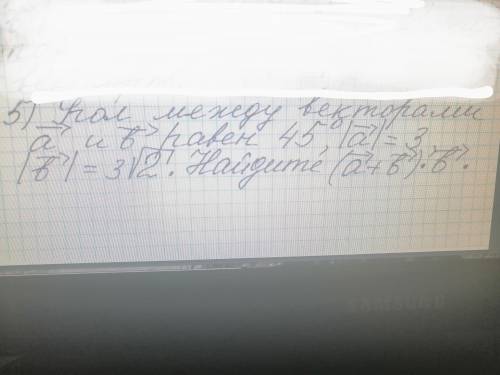 5) Угол между векторами
a⃗ и b⃗ равен 45°, |a⃗| = 3
|b⃗| = 3√2. Найдите (a⃗+b⃗)·b⃗.
SAMSUNG